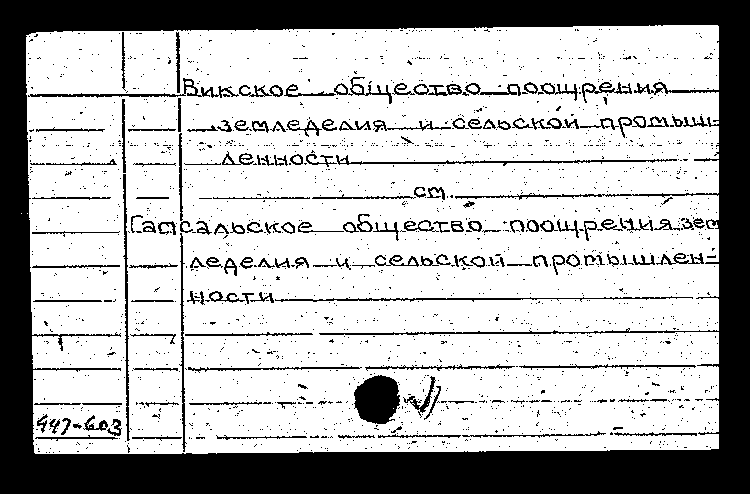 Викское общество поощрения
земледелия и сельской промыш=
ленности
ст.
Гапсальское общество поощрения зем
леделия и сельской промышлен=
ности
447-603